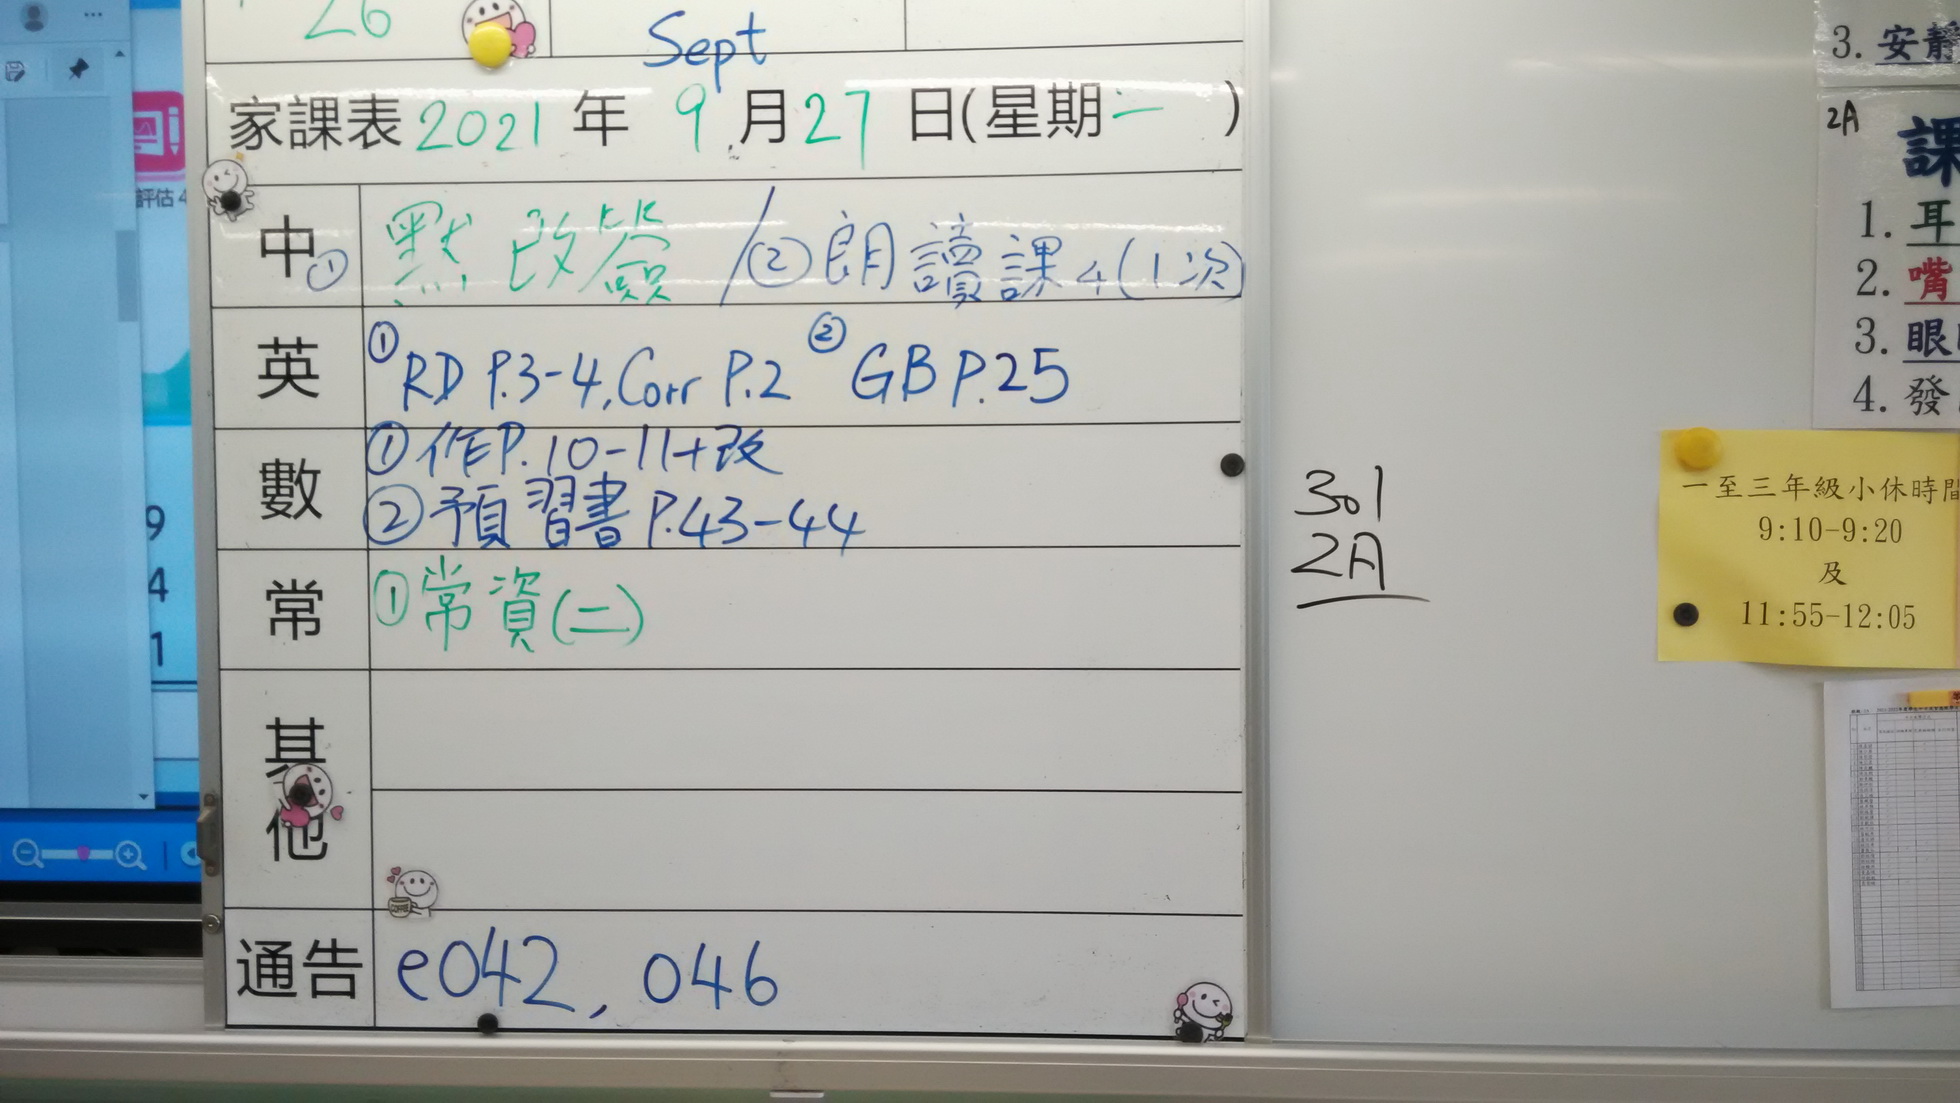 26
Sept
家課表 2021 年 9 月 27 日(星期一 )
中 ① 默改簽 / ② 朗讀課4(1次)
英 ① RD P.3-4, Corr P.2 ② GB P.25
數 ① 作P.10-11+改
② 預習書 P.43-44
常 ① 常資(二)
其他
通告 e042, 046
評估 4
9
4
1
301
2A
3. 安靜
2A
課
1. 耳
2. 嘴
3. 眼
4. 發
一至三年級小休時間
9:10-9:20
及
11:55-12:05